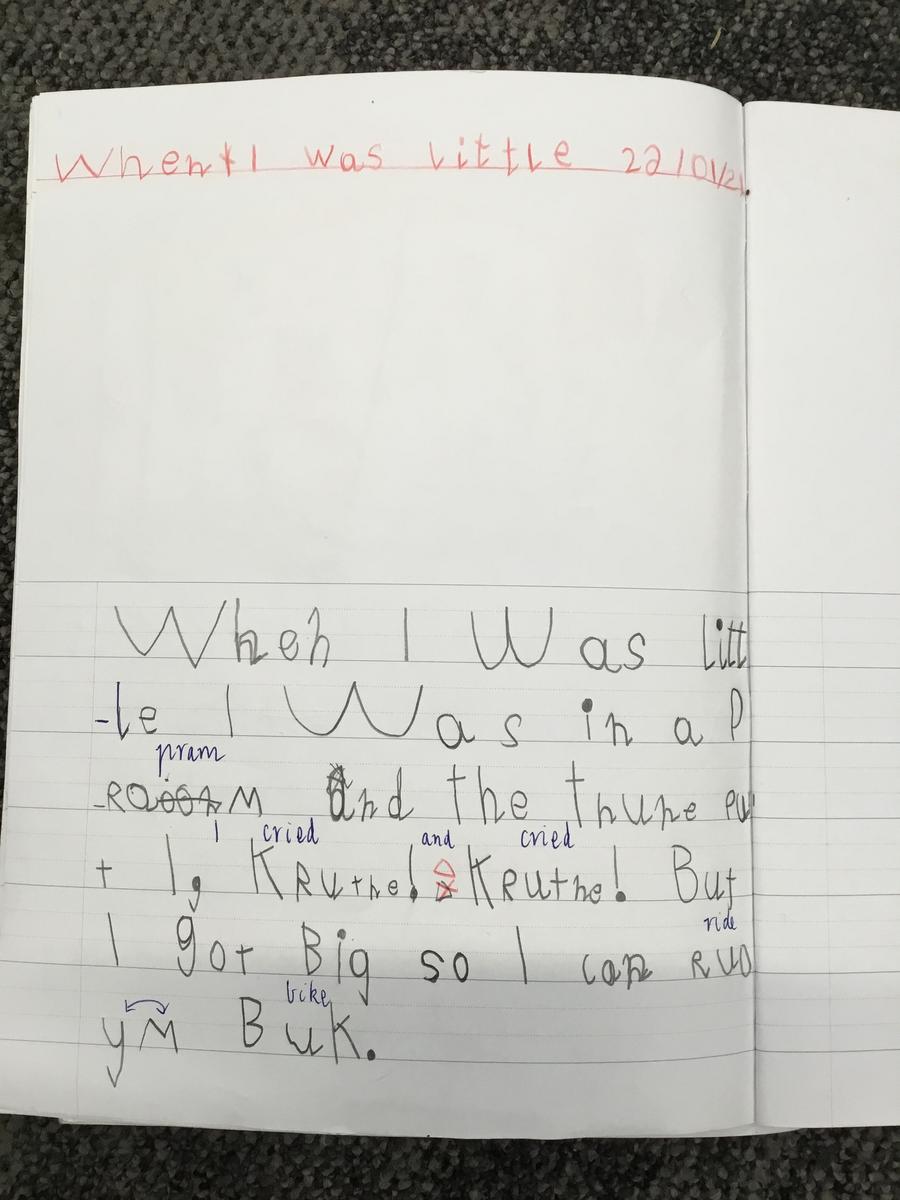 When I was little 22/01/21
When I Was litt
-le I Was in a P
pram
-Ram and the thune
I cried and cried
t I, Kruthe! & Kruthe! But
ride
I got Big so I can Rud
bike
yM Buk.